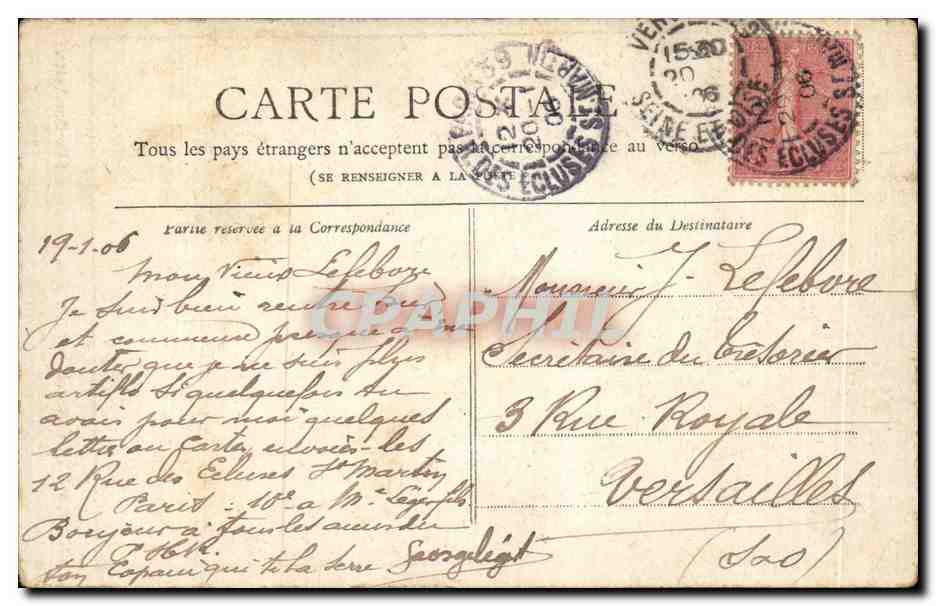 CARTE POSTALE
Tous les pays étrangers n'acceptent pas la correspondance au verso
(SE RENSEIGNER A LA POSTE)
PARIS 59
R. DES ECLUSES ST MARTIN
20
06
15
20
06
SEINE-ET-OISE
DES ECLUSES ST MARTIN
06
Partie réservée à la Correspondance
Adresse du Destinataire
CPAPHIL
19-1-06
mon Vieux Lefebvre
Je suis bien rentré
et commence presque a
douter que je ne suis plus
artiflo Si quelquefois tu
avais pour moi quelques
lettre ou Cartes envoies-les
12 Rue des Ecluses St Martin
Paris : 10e a Mr Leger fils
Bonjour à tous les
ton Copain qui te la serre
Monsieur J. Lefebvre
Secrétaire du trésorier
3 Rue Royale
Versailles
(S&O)